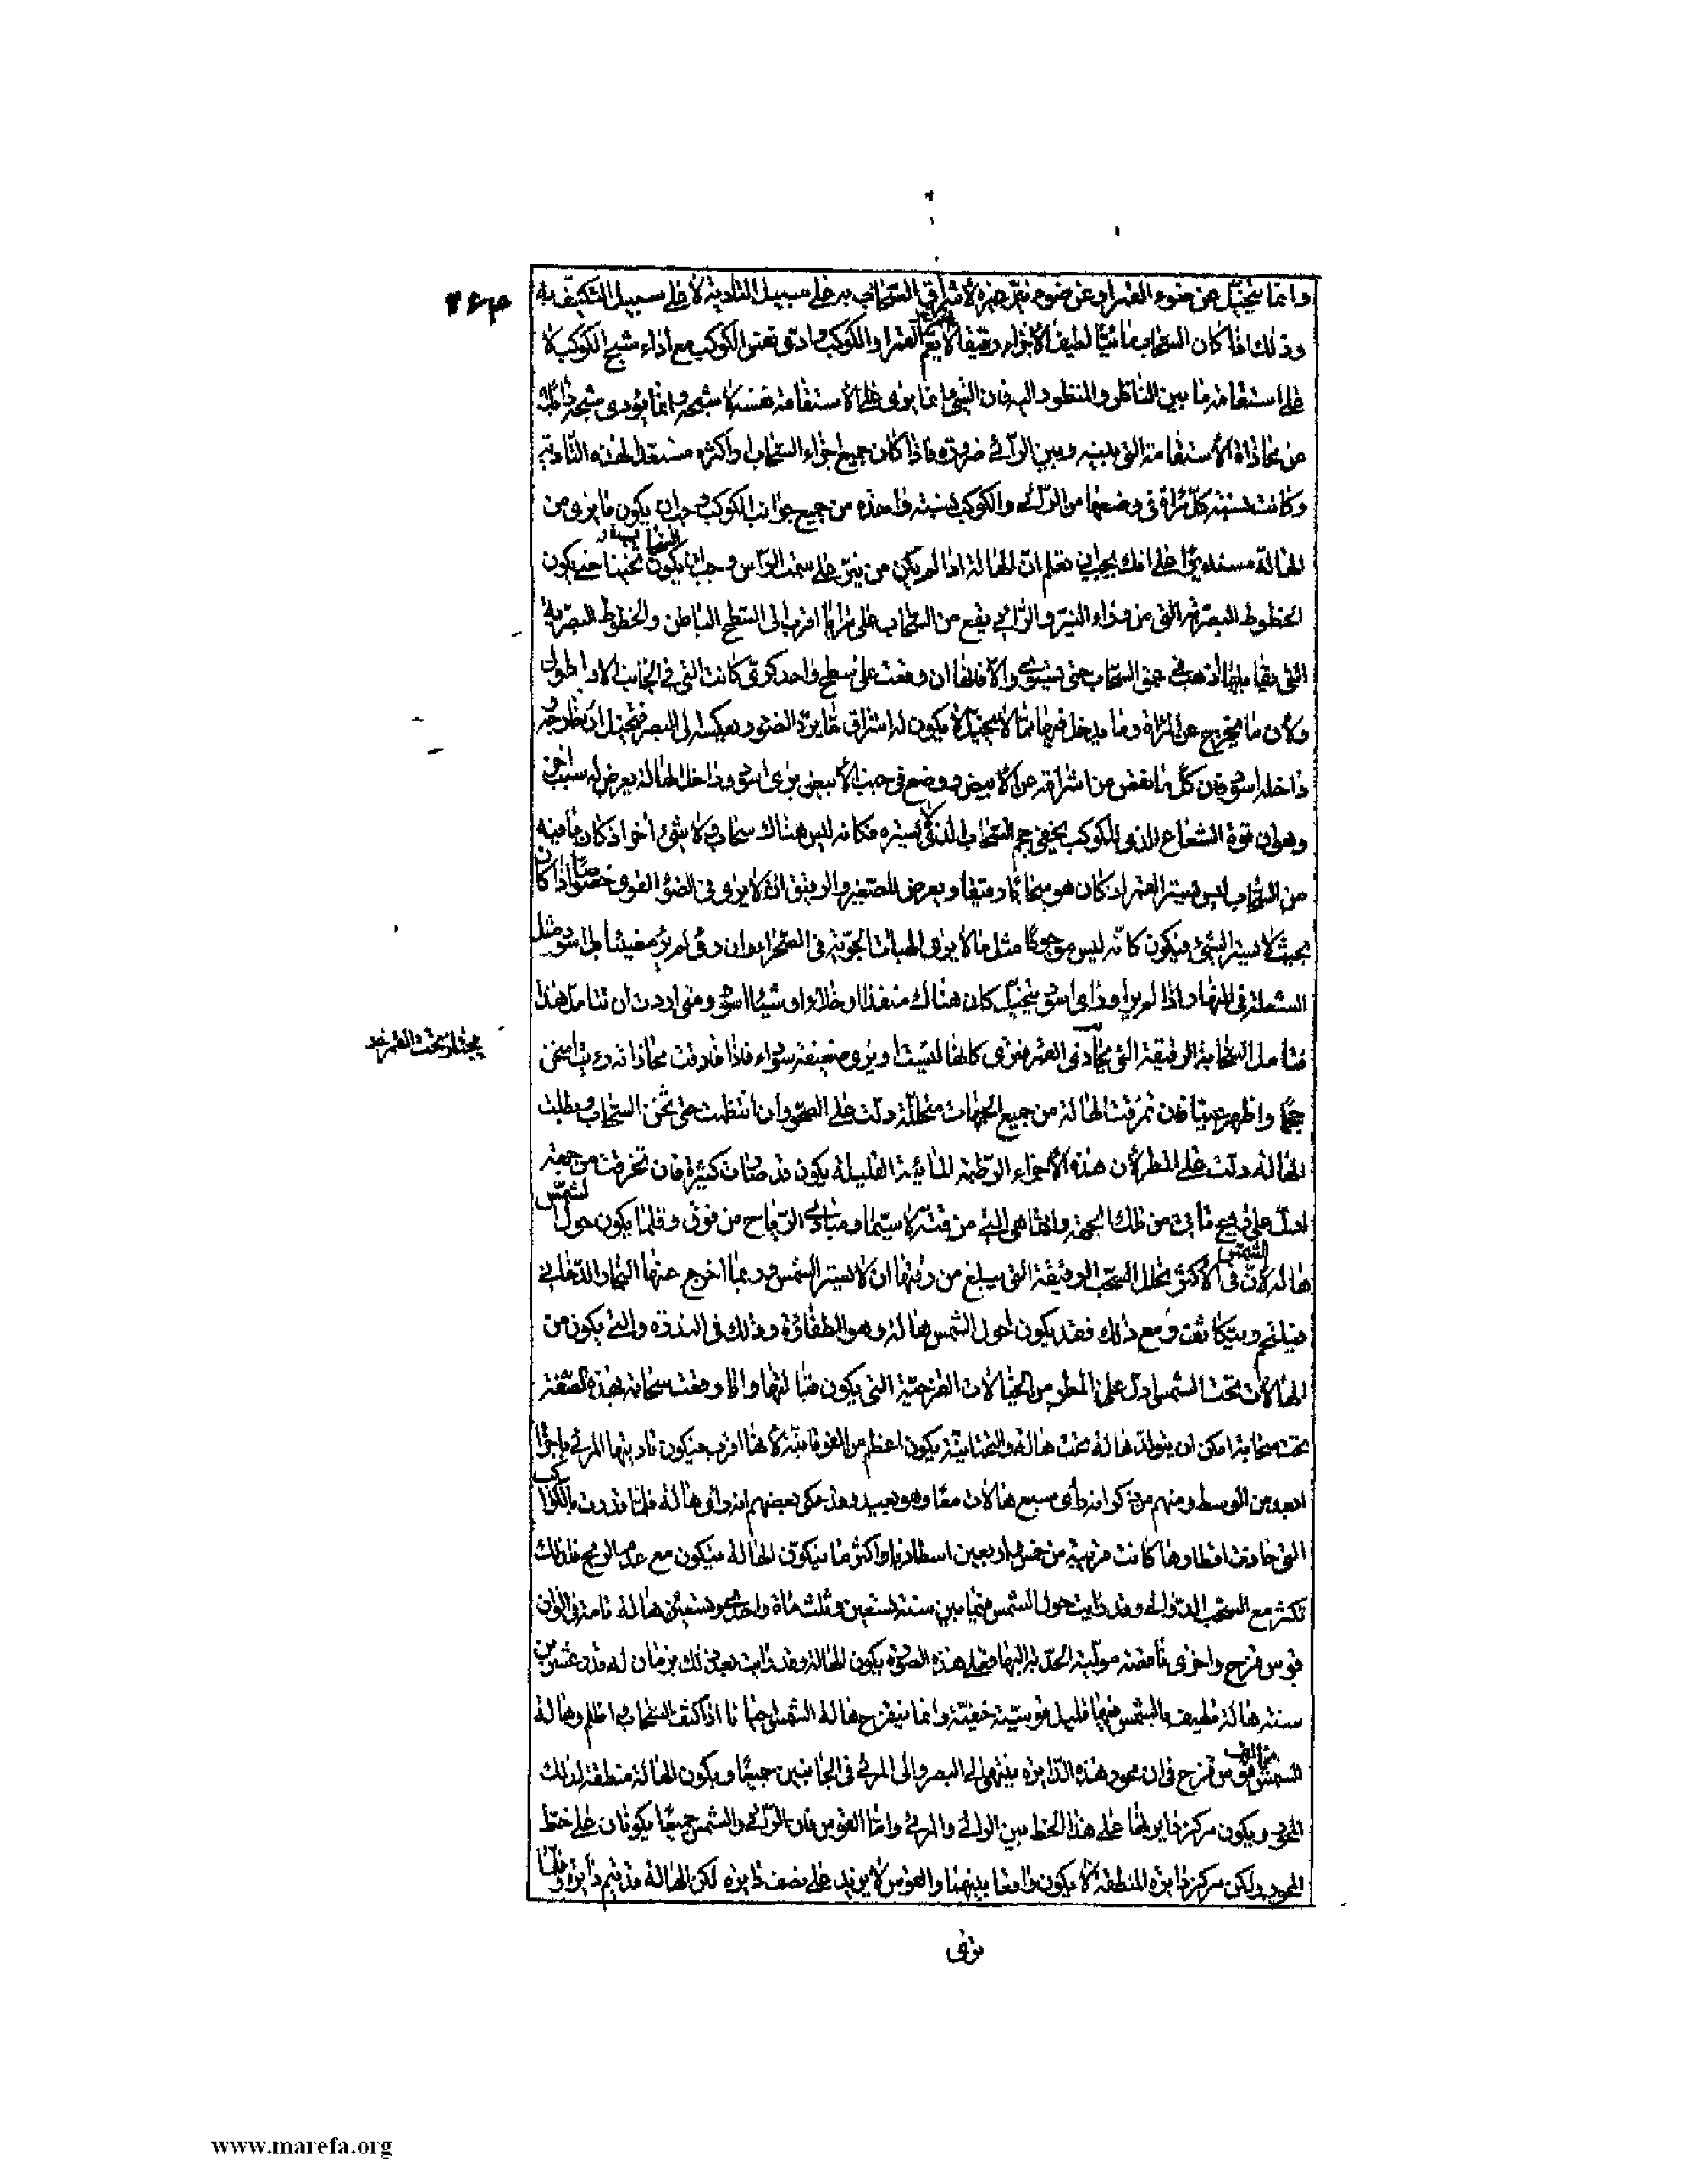 وانما يتخيل عن ضوء القمر او عن ضوء نير غيره لاشراق السحاب به على سبيل التأدية لا على سبيل التكيف به
وذلك اذا كان السحاب مائيا لطيف الاجزاء رقيقا لا يغم القمر او الكوكب وادى نفس الكوكب مع اداء شبح الكوكب لا
على استقامة ما بين الناظر والمنظور اليه فان الشئ انما يرى على الاستقامة نفسه لا شبحه وانما يؤدى شبحه
عن محاذاة الاستقامة التى بينه وبين الرائى ضرورة فاذا كان جميع اجزاء السحاب او اكثره مستعدا لهذه التأدية
وكانت نسبة كل مرآة فى وضعها من الرائى والكوكب نسبة واحدة من جميع جوانب الكوكب وجب ان يكون ما يرى من
الهالة مستديرا على انك يجب ان تعلم ان الهالة اذا لم يكن من نير على سمت الرأس وجب ان يكون السحاب ثخينا حتى يكون
الخطوط البصرية التى من وراء النير والرائى يقع من السحاب على مرايا اقرب الى السطح الباطن والخطوط البصرية
التى يقابلها تذهب فى عمق السحاب حتى يستوى والا فانها ان وقعت على سطح واحد كرى كانت التى فى الجانب الاول اطول
ولأن ما يخرج عن المرآة وما يدخل فيها مما لا يتخيل لا يكون له اشراق ما يرد الضوء ويعكسه الى البصر فيتخيل ان خارجه و
داخله اسود فان كل ما نقص من اشراقه عن الابيض ووضع فى جنب الابيض يرى اسود وداخل الهالة يعرض له سبب آخر
وهو ان قوة الشعاع الذى للكوكب يخفى حجم السحاب الذى لا يستره فكانه ليس هناك سحاب ولا شئ آخر اذ كان ما فيه
من السحاب ليس يستر القمر اذ كان هو سحابا رقيقا ويعرض للصغير والرقيق ان لا يرى فى الضوء القوى خصوصا اذا كان
بحيث لا يستر الشئ فيكون كانه ليس موجودا مثل ما لا يرى الهبات الجوية فى الصحراء وان رؤى لم ير مضيئا بل اسود مثل
الشعلة فى النهار واذا لم ير او رؤى اسود يتخيل كان هناك منفذا او خلاء او شيئا اسود ومتى اردت ان تتامل هذا
فتامل السحابة الرقيقة التى تحاذى القمر فترى كانها ليست او يرى ضعيفة سوداء فاذا فارقت محاذاته رؤيت اثخن
يجتاز تحت القمر
حجما واظهر عينا فان تمزقت الهالة من جميع الجهات متحللة دلت على الصحو وان انتظمت حتى ثخن السحاب وبطلت
الهالة دلت على المطر لأن هذه الاجزاء الرطبة المائية القليلة يكون قد صارت كثيرة فان تخرقت من جهة
ادل على ريح تأتى من تلك الجهة وانها هى التى مزقته لا سيما ومبادى الرياح من فوق وقلما يكون حول الشمس
هالة لان الشمس فى الاكثر تحلل السحب الرقيقة التى يبلغ من رقتها ان لا يستر الشمس وربما اخرج عنها البخار الدخانى
ومع ذلك فقد يكون حول الشمس هالة وهو الطفاوة وذلك فى الندرة والتى يكون من
الهالات تحت الشمس ادل على المطر من الخيالات القزحية التى يكون قبالتها واذا وقعت سحابة بهذه الصفة
تحت سحابة امكن ان يتولد هالة تحت هالة والتحتانية يكون اعظم من الفوقانية لانها اقرب فيكون تاديتها المرئى باجزاء
ابعد من الوسط ومنهم من ذكر انه رأى سبع هالات معا وهو بعيد وقد حكى بعضهم انه رأى هالة فلما قدرت بالكواكب
التى حاذت اقطارها كانت قريبة من خمس واربعين اسطاديا واكثر ما يتكون الهالة فيتكون مع عدم الريح فلذلك
تكثر مع السحب الدوانى وقد رأيت حول الشمس فيما بين سنة تسعين وثلث مائة واحدى وتسعين هالة تامة فى الوان
قوس قزح واخرى ناقصة مولية الحدبة اليها فعلى هذه الصورة يكون الهالة وقد رأيت بعد ذلك بزمان له قدر عشرين
سنة هالة تطيف بالشمس فيها قليل قوسية خفية وانما يتقزح هالة الشمس احيانا اذا كثف السحاب واظلم وهالة
الشمس مخالف قوس قزح فى ان محور هذه الدائرة ينتهى الى البصر والى المرئى فى الجانبين جميعا ويكون الهالة منطقة لذلك
المحور ويكون مركز دايرتها على هذا الخط بين الرائى والمرئى واما القوس فان الرائى والشمس جميعا يكونان على خط
المحور ولكن مركز دائرة المنطقة لا يكون واقعا بينهما والقوس لا يزيد على نصف دايرة لكن الهالة قد يتم دايرة وقلما
ترى
www.marefa.org